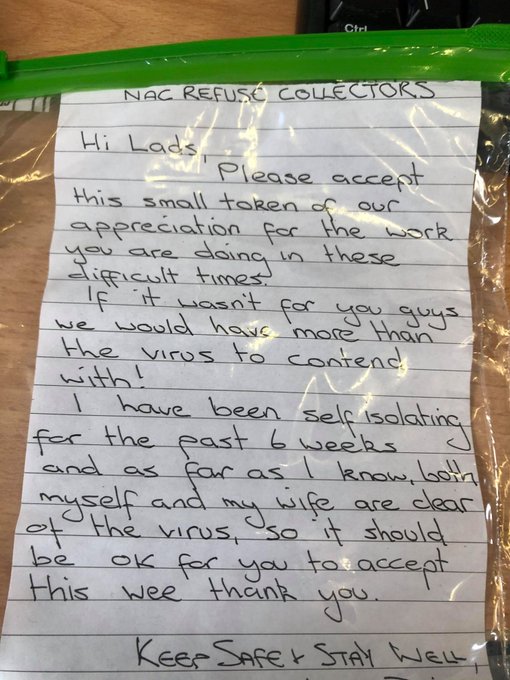 Ctrl
NAC REFUSE COLLECTORS
Hi Lads,
Please accept
this small token of our
appreciation for the work
you are doing in these
difficult times.
If it wasn't for you guys
we would have more than
the virus to contend
with!
I have been self isolating
for the past 6 weeks
and as far as I know, both
myself and my wife are clear
of the virus, so it should
be OK for you to accept
this wee thank you.
KEEP SAFE & STAY WELL,